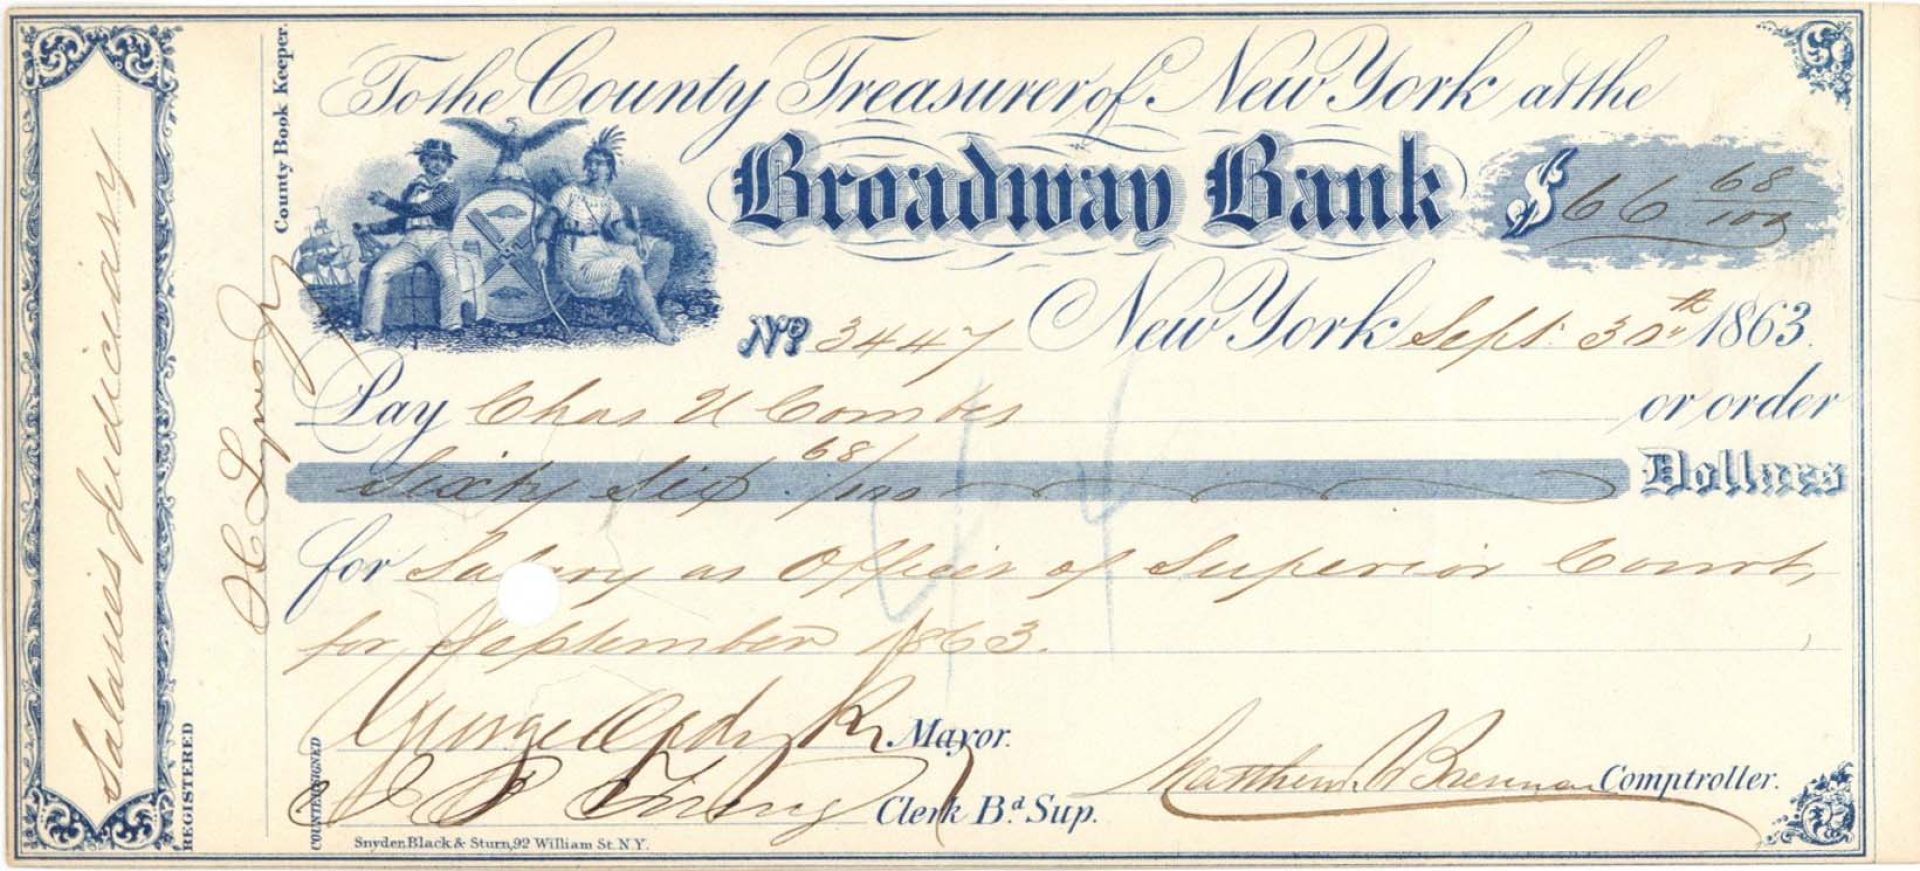 To the County Treasurer of New York at the
Broadway Bank $ 66 68/100
No. 3447 New York Sept. 30th 1863.
Pay Chas H Combes or order
Sixty Six 68/100 Dollars
for Salary as Officer of Superior Court,
for September 1863.
George Opdyke Mayor.
Clerk Bd. Sup.
Matthew T Brennan Comptroller.
COUNTERSIGNED
Snyder, Black & Sturn, 92 William St. N.Y.
Salaries Judiciary
REGISTERED
County Book Keeper.